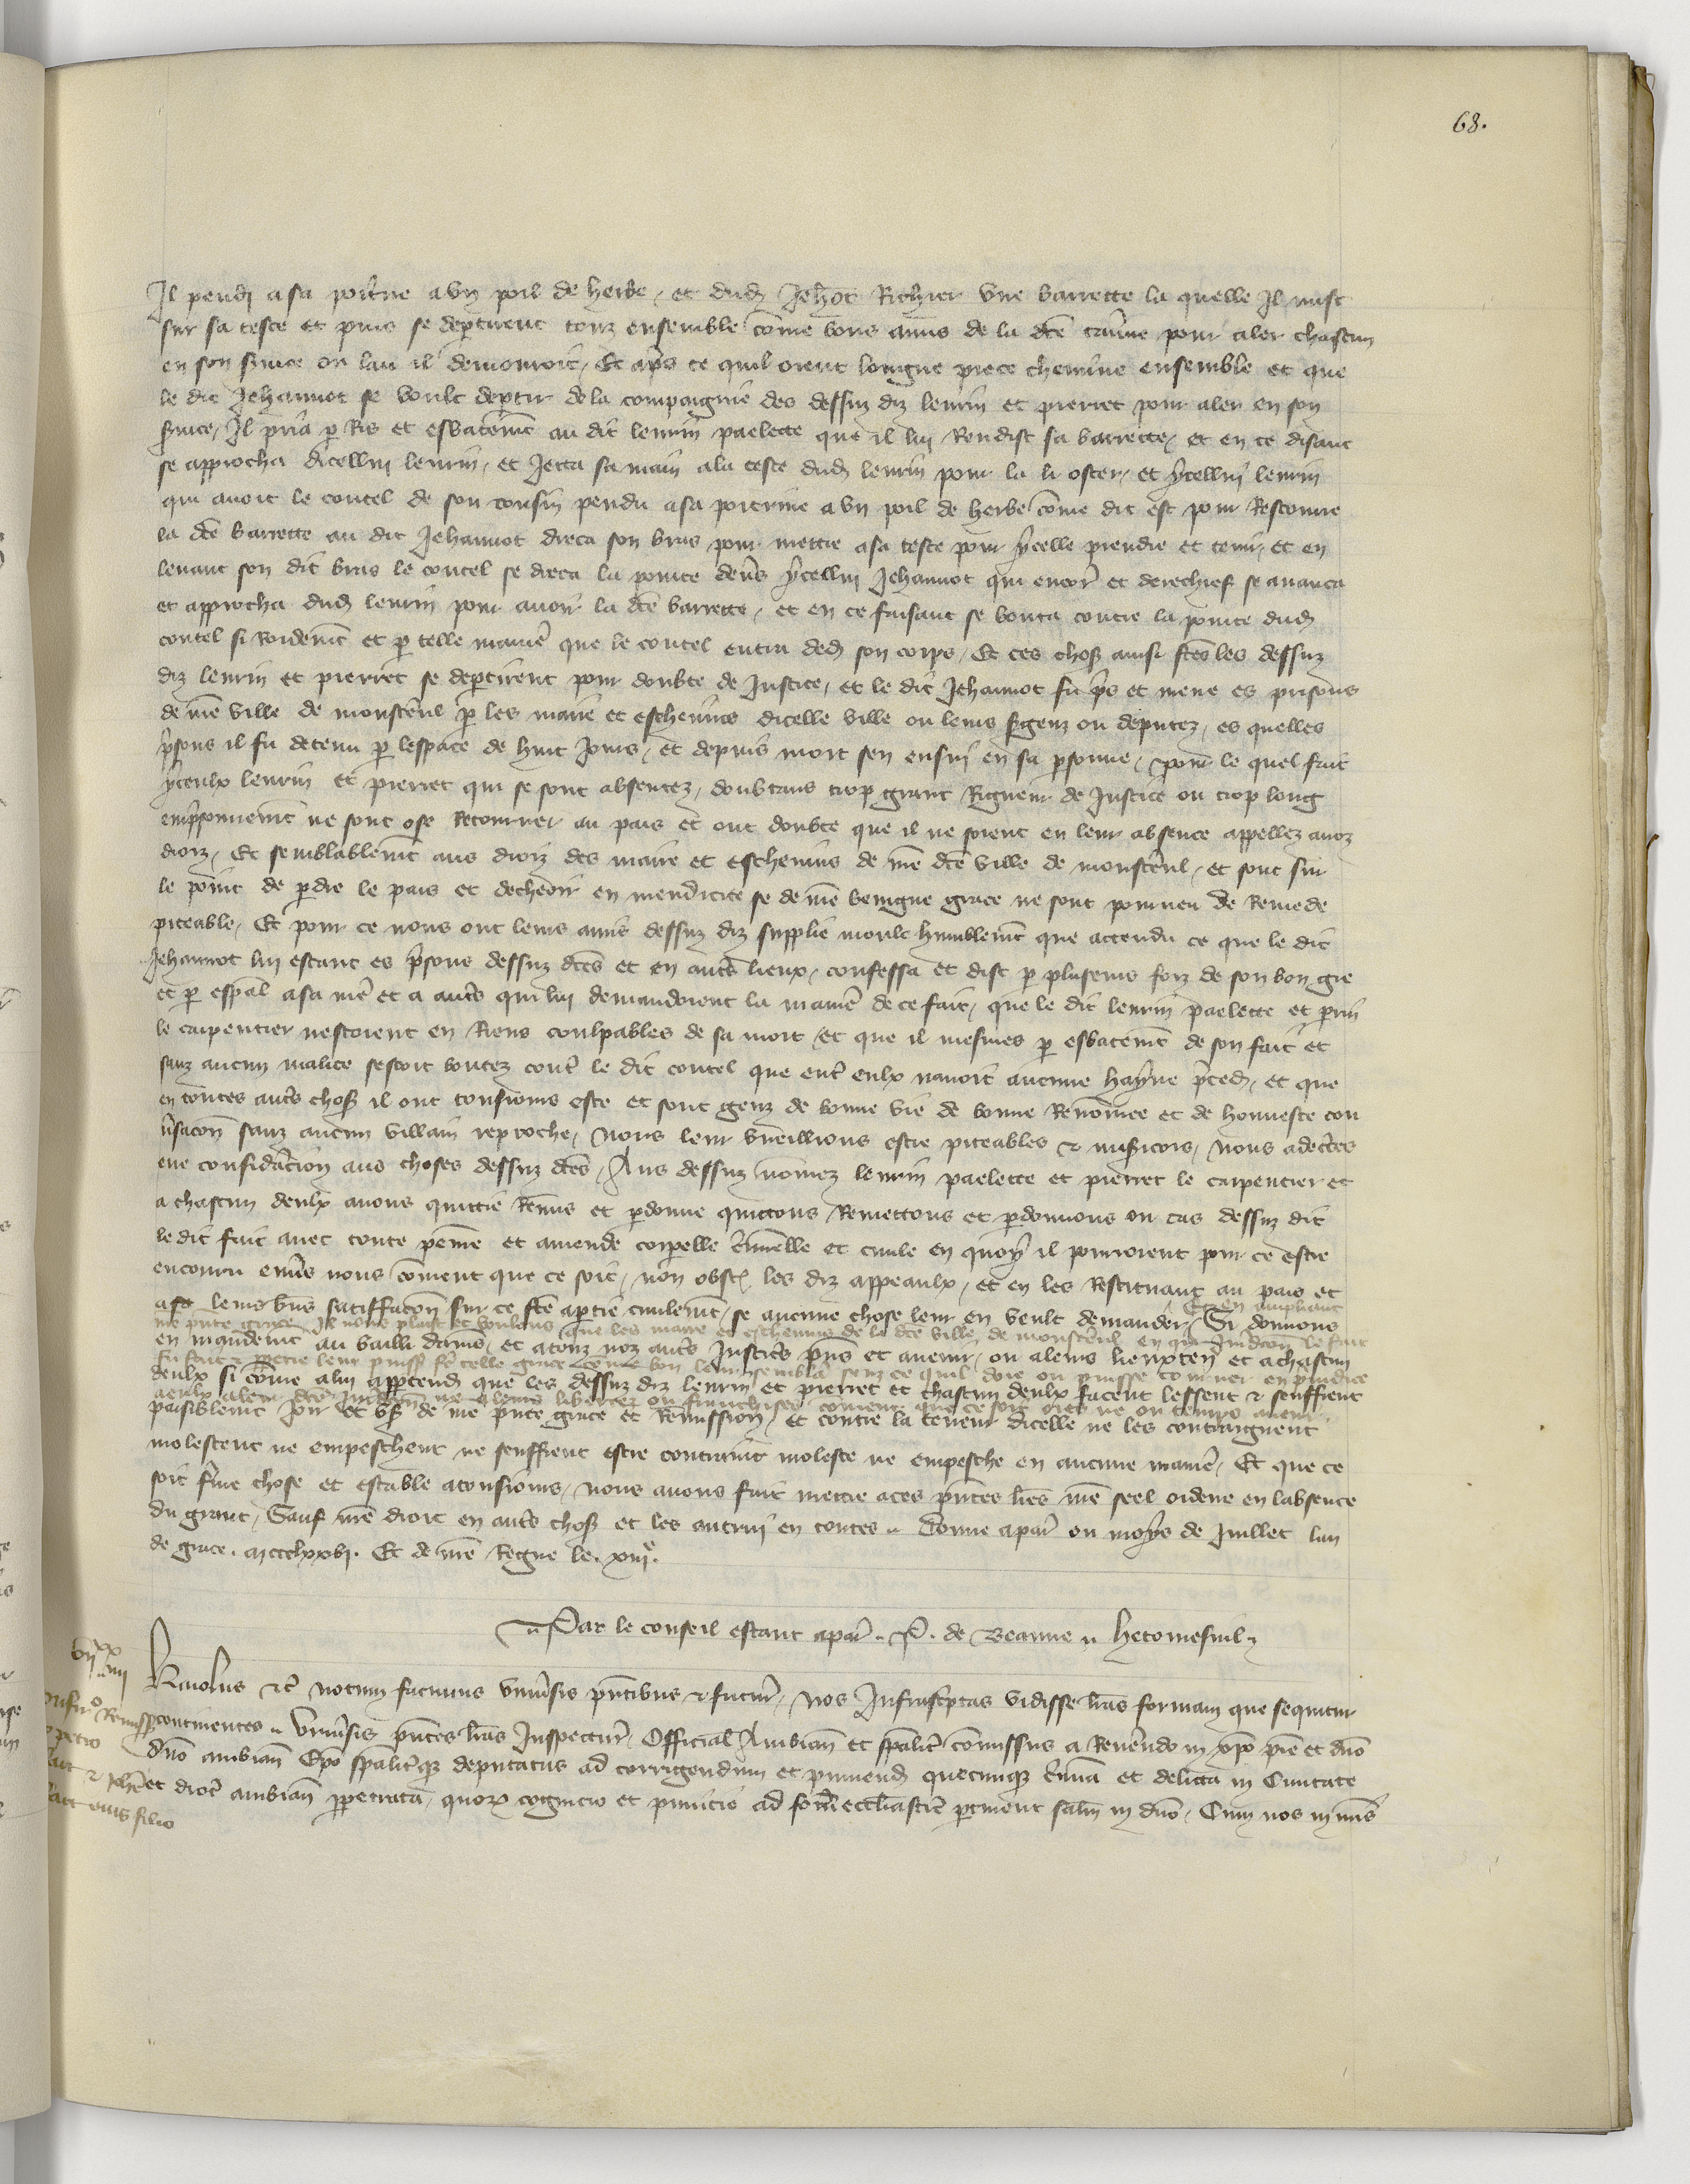 68.
Il pendi a sa poitrine a un poil de herbe, et dud Jehot Richier une barrette la quelle il mist
sur sa teste et puis se deptirent touz ensemble come bons amis de la dce taverne pour aler chascun
en son service ou lau il demouroit, Et aps ce quil orent longue piece chemine ensemble et que
le dit Jehannot se voult deptir de la compaignie des dessuz diz lenrin et pierret pour aler en son
service, Il pria p Ris et esbatemt au dit lenrin paelette que il lui Rendist sa barrette, et en ce disant
se approcha dicellui lenrin, et Jetta sa main a la teste dud lenrin pour la li oster, et ycellui lenrin
qui avoit le coutel de son cousin pendu a sa poitrine a un poil de herbe come dit est pour Rescourre
la dce barrette au dit Jehannot dreca son bras pour mettre a sa teste pour ycelle prendre et tenir, et en
levant son dit bras le coutel se dreca la pointe devs ycellui Jehannot qui encor et derechief se avanca
et approcha dud lenrin pour avoir la dce barrette, et en ce faisant se bouta contre la pointe dud
coutel si Roidemt et p telle manie que le coutel entra ded son corps, Et ces chos ainsi fces les dessuz
diz lenrin et pierret se deptirent pour doubte de Justice, et le dit Jehannot fu pis et mene es prisons
de nre ville de monsterul p les maire et eschevins dicelle ville ou leurs sgenz ou deputez, es quelles
prsons il fu detenu p lespace de huit jours, et depuis mort sen ensui en sa psonne, pour le quel fait
yceulx lenrin et pierret qui se sont absentez, doubtans trop grant Rigueur de Justice ou trop long
emprsonnemt ne sont ose Retourner au pais et ont doubte que il ne soient en leur absence appellez a noz
droiz, Et semblablemt aus droiz des maire et eschevins de nre dce ville de monsterul, et sont sur
le point de pdre le pais et decheoir en mendicite se de nre benigne grace ne sont pourveu de Remede
piteable, Et pour ce nous ont leurs amis dessuz diz supplie moult humblemt que attendu ce que le dit
Jehannot lui estant es prsons dessuz dces et en auts lieux, confessa et dist p pluseurs foiz de son bon gre
et p espal a sa me et a auts qui lui demandoient la manie de ce fait, que le dit lenrin paelette et prin
le carpentier nestoient en Riens coulpables de sa mort, et que il mesmes p esbatemt de son fait et
sanz aucun malice sestoit boutez cont le dit coutel que ent eulx navoit aucune hayne pced, et que
en toutes auts chos il ont tousiours este et sont genz de bonne vie de bonne Renomee et de honneste con
vsacon sanz aucun villain reproche, Nous leur vueillions estre piteables & misicors, Nous adectes
eue considacion aus choses dessuz dces, Aus dessuz nomez lenrin paelette et pierret le carpentier et
a chascun deulx avons quittie Remis et pdonne quittons Remettons et pdonnons ou cas dessuz dit
le dit fait avec toute peine et amende corpelle cimelle et civile en quoy il pourroient pour ce estre
encouru envs nous coment que ce soit, non obst les diz appeaulx, et en les Restituant au pais et
a leurs bns satiffacon sur ce fce a ptie civilemt, se aucune chose leur en veult demander, Et en ampliant
nre pnte grace Il nous plaist et voulons que les maire et eschevins de la dce ville de monsterul en qui Juridcon le fait
fu fait, pcie leur puiss fe telle grace come bon leur semblera senz ce quil doie ou puisse tourner en piudice
a eulx a leur dce Juridcon ne a leurs libertez ou franchises coment que ce soit ores ne ou temps avenir,
Si donnons
en mandemt au bailli damis, et a touz noz auts Justices pns et avenir, ou a leurs lieuxten et a chascun
deulx si come a lui apptend que les dessuz diz lenrin et pierret et chascun deulx facent lessent & seuffrent
paisiblemt joir et us de nre pnte grace et Remission, Et contre la teneur dicelle ne les contraignent
molestent ne empeschent ne seuffrent estre contraint moleste ne empesche en aucune manie, Et que ce
soit fme chose et estable a tousiours, Nous avons fait mettre a ces pntes lres nre seel ordene en labsence
du grant, Sauf nre droit en auts chos et les autrui en toutes. Donne a par ou moys de Juillet lan
de grace. mccclxxvi. Et de nre Regne le. xiii e.
Par le conseil estant a par. P. de Beaune. hetomesnil
vii xx iiii
Karolus etc Notum facimus univsis pntibus & futur, Nos Infrascptas vidisse lras formam que sequitur
continentes. Univsis pntes lras Inspectur, Official Ambian et spalit comissus a Revendo in xpo pre et dno
dno ambian Epo spalitq deputatus ad corrigendum et puniend quecunq cimia et delicta in Civitate
et dioc ambian ppetrata, quor cognicio et punicio ad for ecclasticu ptinent salm in dno, Cum nos in nris
Remiss
filio